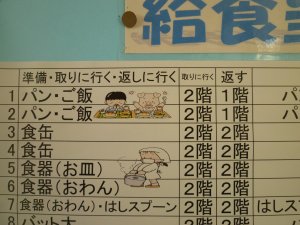 給食
準備・取りに行く・返しに行く 取りに行く 返す
1 パン・ご飯 2階 1階 パ
2 パン・ご飯 2階 1階 パ
3 食缶 2階 2階
4 食缶 2階 2階
5 食器(お皿) 2階 2階
6 食器(おわん) 2階 2階
7 食器(おわん)・はしスプーン 2階 2階 はしス
8 バット大 2階 2階